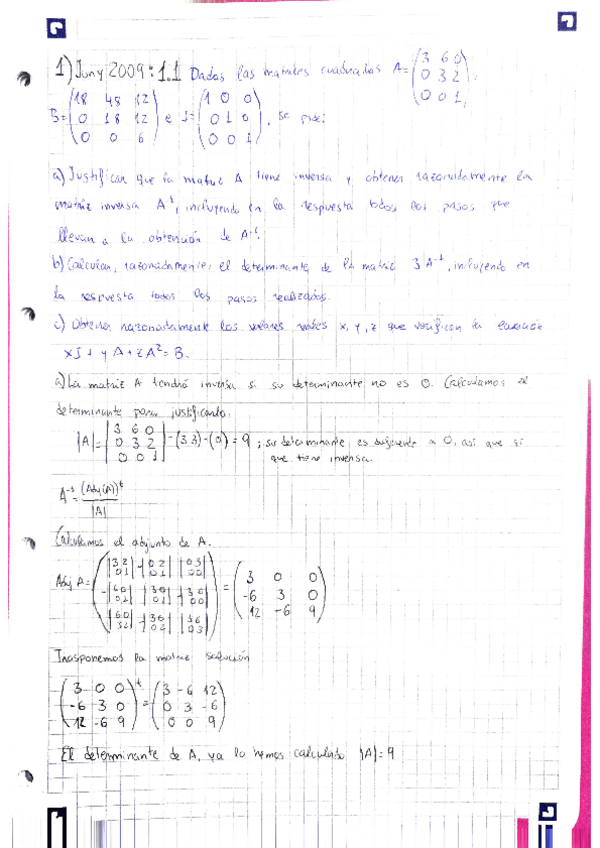 1) Juny 2009: 1.1 Dadas las matrices cuadradas A = (3 6 0
0 3 2
0 0 1),
B = (18 48 12
0 18 12
0 0 6) e I = (1 0 0
0 1 0
0 0 1), se pide:
a) Justificar que la matriz A tiene inversa y obtener razonadamente la
matriz inversa A⁻¹, incluyendo en la respuesta todos los pasos que
llevan a la obtención de A⁻¹.
b) Calcular, razonadamente, el determinante de la matriz 3A⁻¹, incluyendo en
la respuesta todos los pasos realizados.
c) Obtener razonadamente los valores reales x, y, z que verifican la ecuación
xI + yA + zA² = B.
a) La matriz A tendrá inversa si su determinante no es 0. Calculamos el
determinante para justificarlo.
|A| = |3 6 0
0 3 2
0 0 1| = (3·3) - (0) = 9; su determinante es diferente a 0, así que sí
que tiene inversa.
A⁻¹ = (Adj(A))ᵗ
|A|
Calculamos el adjunto de A.
Adj A = (|3 2 0 1| -|0 2 0 1| |0 3 0 0|
-|6 0 0 1| |3 0 0 1| -|3 6 0 0|
|6 0 3 2| -|3 0 0 2| |3 6 0 3|) = (3 0 0
-6 3 0
12 -6 9)
Trasponemos la matriz solución
(3 0 0
-6 3 0
12 -6 9)ᵗ = (3 -6 12
0 3 -6
0 0 9)
El determinante de A, ya lo hemos calculado |A| = 9